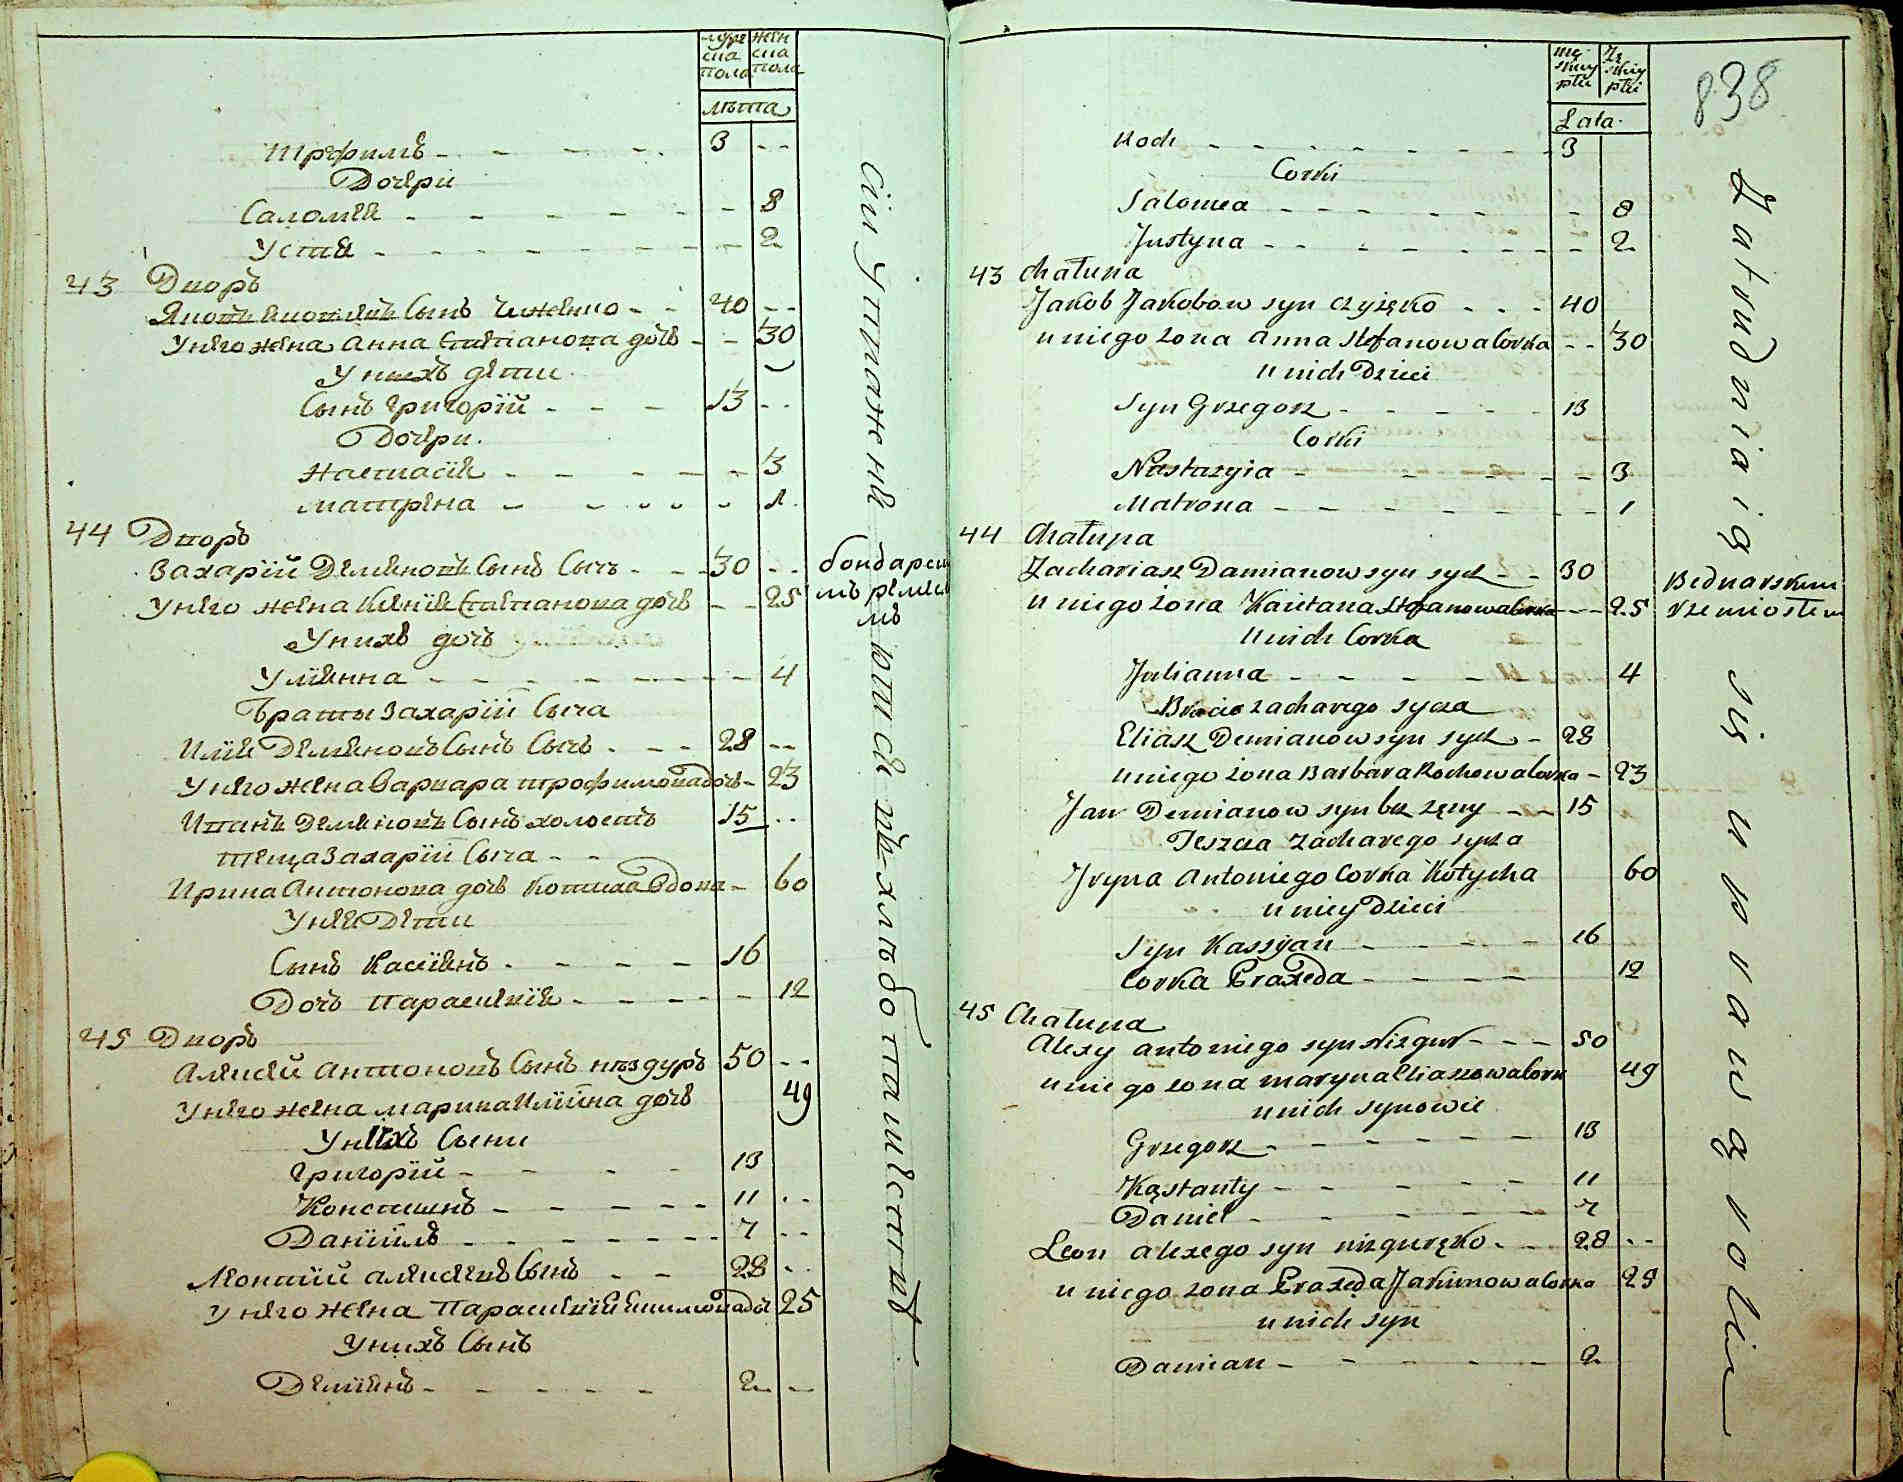 муже
ска
пола
жен
ска
пола
лѣта
Трофимъ - - - - - 3 - -
Дочери
Саломея - - - - - - - 8
Устія - - - - - - - - 2
43 Дворъ
Яковъ Яковлевъ Сынъ Чижевко - - 40 - -
У него жена Анна Степанова дочь - - 30
У нихъ дети
Сынъ Григорій - - - 13 - -
Дочери.
Настасія - - - - - - 3
Матрена - - - - - - 1.
44 Дворъ
Захарій Демяновъ Сынъ Сычъ - - - 30 - -
У него жена Ксенія Степанова дочь - - 25
бондарски
мъ ремесло
мъ
У нихъ дочь
Уліянна - - - - - - - - 4
Браты Захарій Сыча
Илія Демяновъ Сынъ Сычъ - - - 28 - -
У него жена Варвара Трофимова дочь - 23
Иванъ Демяновъ Сынъ холостъ 15 - -
Теща Захарій Сыча - -
Ирина Антонова дочь Котыха Вдова - 60
У неи Дети
Сынъ Касіянъ - - - - - 16
Дочь Параскевія - - - - - 12
45 Дворъ
Алексей Антоновъ Сынъ Низдуръ 50 - -
У него жена Марина Илііна дочь 49
У нихъ Сыни
Григорій - - - - 13
Констинъ - - - - - - 11 - -
Даніилъ - - - - - - - - 7 - -
Леонтій Алексеевъ Сынъ - - 28 - -
У него жена Параскевія Якимова дочь 25
У нихъ Сынъ
Деміянъ - - - - - - 2 - -
Сіи упражняются въ хлебопашестве
838
mę
skiey
płci
Ze
skiey
płci
Lata.
Roch - - - - - - - - - 3
Corki
Salomea - - - - - - - 8
Justyna - - - - - - - - 2
43 Chałupa
Jakob Jakobow syn Czyżęko - - - 40
u niego żona Anna Stefanowa Corka - - 30
u nich Dzieci
Syn Grzegorz - - - - - - 13
Corki
Nastazyia - - - - - - 3
Matrona - - - - - - - - 1
44 Chałupa
Zachariasz Damianow syn sycz - - 30
u niego żona Kaietana Stefanowa Corka - - - 25
Bednarskim
rzemiosłem
u nich Corka
Julianna - - - - - - 4
Bracia Zacharego sycza
Eliasz Demianow syn sycz - 28
u niego żona Barbara Rochowa Corka - 23
Jan Demianow syn bez żęny - - 15
Teszcza Zacharego sycza
Iryna Antoniego Corka Kotycha 60
u niey Dzieci
Syn Kassyan - - - - - 16
Corka Praxeda - - - - - 12
45 Chałupa
Alexy Antoniego syn Nizgur - - - 50
u niego żona Maryna Eliaszowa Cork 49
u nich synowie
Grzegorz - - - - - - 13
Kąstanty - - - - - - 11
Daniel - - - - - - 7
Leon Alexego syn Nizguręko - - 28 - -
u niego żona Praxeda Jakimowa Corka 29
u nich syn
Damian - - - - - - 2
Zatrudniaią się uprawą rolii